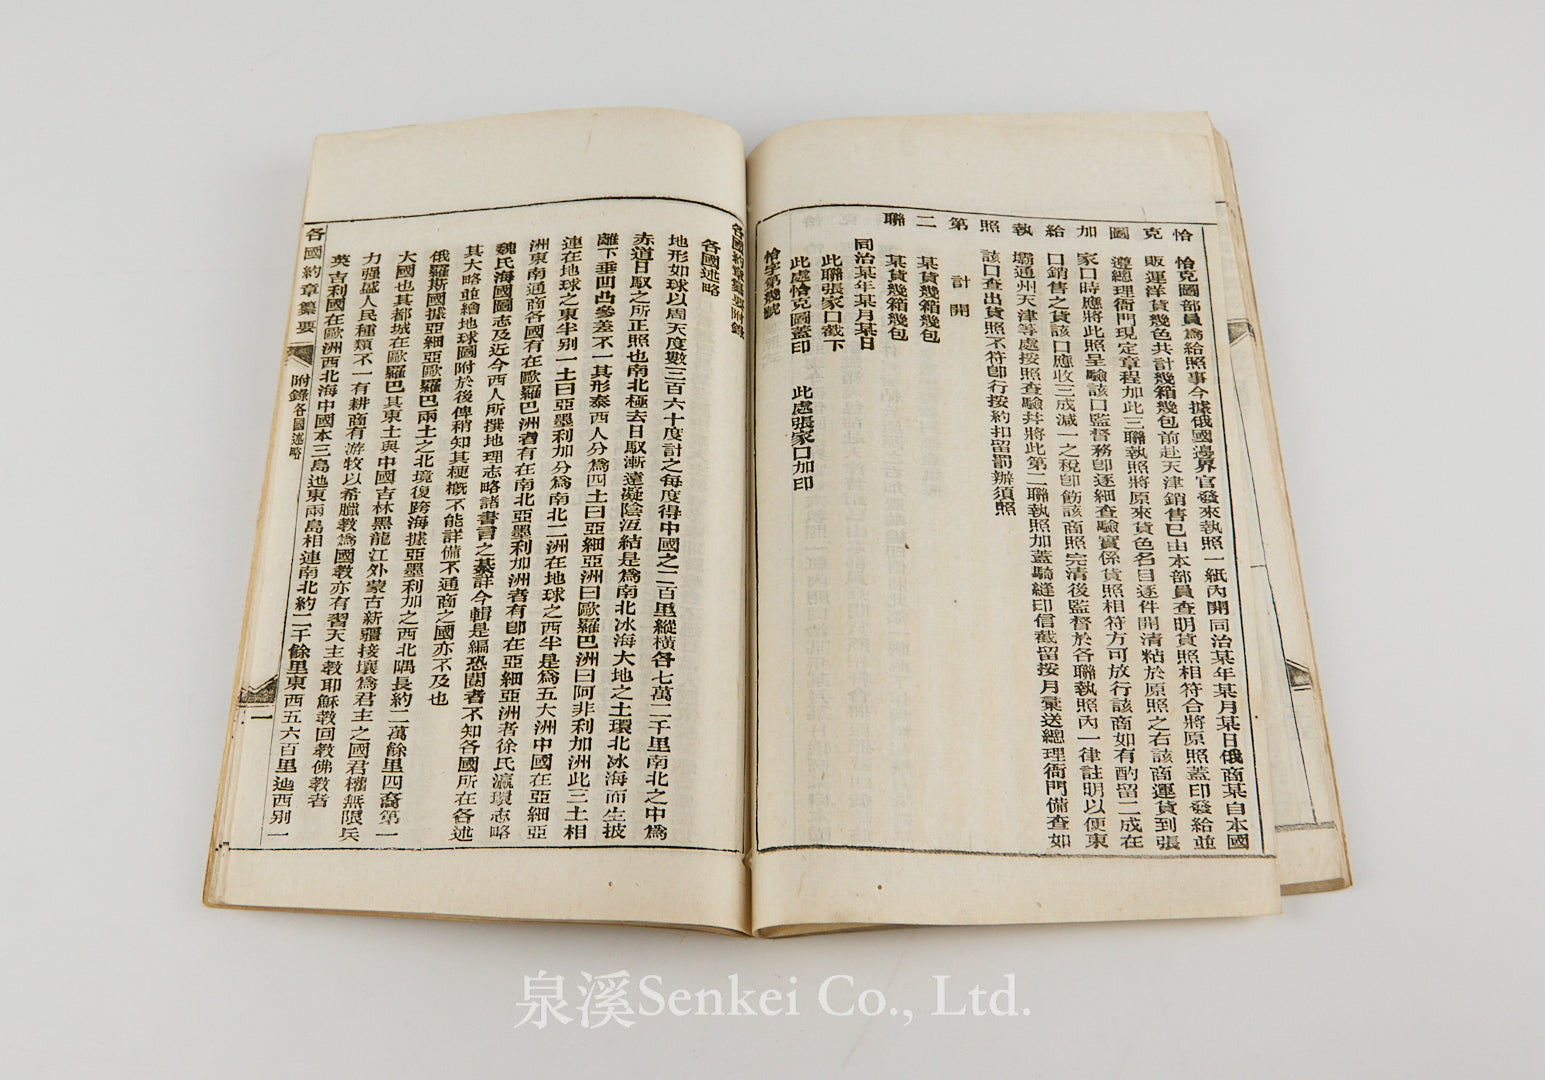 恰克圖加給執照第二聯
恰克圖部員爲給照事今據俄國邊界官發來執照一紙內開同治某年某月某日俄商某自本國
販運洋貨幾色共計幾箱幾包前赴天津銷售已由本部員查明貨照相符合將原照蓋印發給並
遵總理衙門現定章程加此三聯執照將原來貨色名目逐件開清粘於原照之右該商運貨到張
家口時應將此照呈驗該口監督務卽逐細查驗實係貨照相符方可放行該商如有酌留二成在
口銷售之貨該口應收三成減一之稅卽飭該商照完清後監督於各聯執照內一律註明以便東
壩通州天津等處按照查驗幷將此第二聯執照加蓋騎縫印信截留按月彙送總理衙門備查如
該口查出貨照不符卽行按約扣留罰辦須照
計開
某貨幾箱幾包
某貨幾箱幾包
同治某年某月某日
此聯張家口截下
此處恰克圖蓋印　此處張家口加印
恰字第幾號
各國約章纂要附錄
各國述略
地形如球以周天度數三百六十度計之每度得中國之二百里縱橫各七萬二千里南北之中爲
赤道日馭之所正照也南北極去日馭漸遠凝陰沍結是爲南北冰海大地之土環北冰海而生披
離下垂凹凸參差不一其形泰西人分爲四土曰亞細亞洲曰歐羅巴洲曰阿非利加洲此三土相
連在地球之東半別一土曰亞墨利加分爲南北二洲在地球之西半是爲五大洲中國在亞細亞
洲東南通商各國有在歐羅巴洲者有在南北亞墨利加洲者有卽在亞細亞洲者徐氏瀛環志略
魏氏海國圖志及近今西人所撰地理志略諸書言之綦詳今輯是編恐閱者不知各國所在各述
其大略並繪地球圖附於後俾稍知其梗概不能詳備不通商之國亦不及也
俄羅斯國據亞細亞歐羅巴兩土之北境復跨海據亞墨利加之西北隅長約二萬餘里四裔第一
大國也其都城在歐羅巴其東土與中國吉林黑龍江外蒙古新疆接壤爲君主之國君權無限兵
力强盛人民種類不一有耕商有游牧以希臘教爲國教亦有習天主教耶穌教回教佛教者
英吉利國在歐洲西北海中國本三島迤東兩島相連南北約二千餘里東西五六百里迤西別一
各國約章纂要
附錄各國述略
一
泉溪Senkei Co., Ltd.